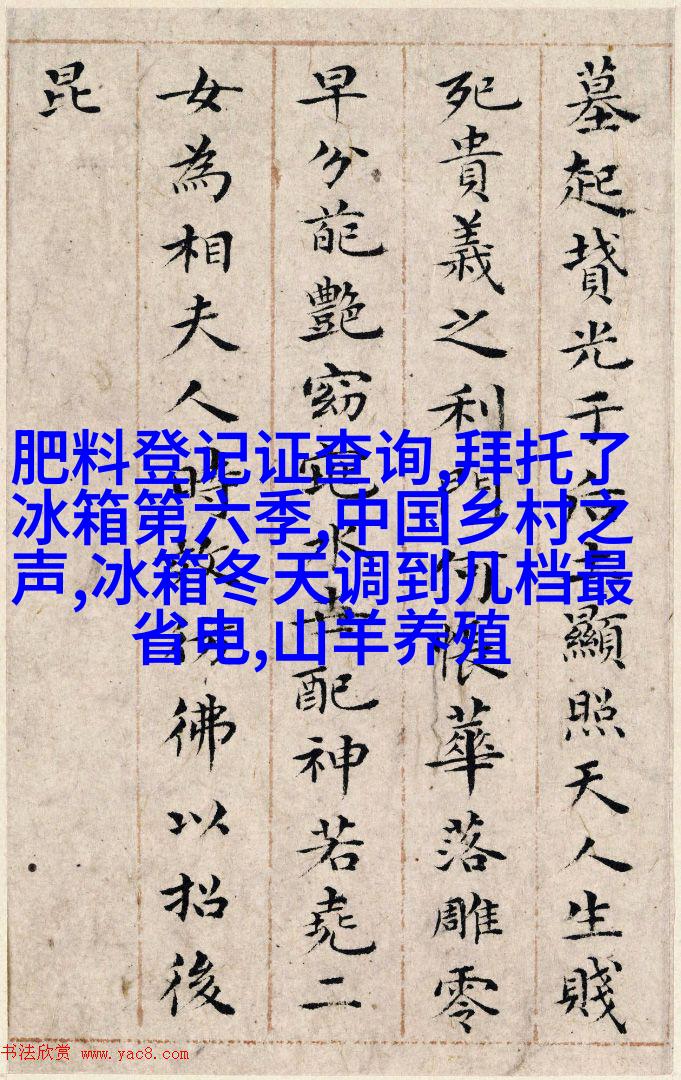 墓起光于后顯照天人生賤
死貴義之利何恨華落雕零
早分葩艷窈窕配神若堯二
女為相夫人時彿以招後
昆
肥料登记证查询,拜托了
冰箱第六季,中国乡村之
声,冰箱冬天调到几档最
省电,山羊养殖
书法欣赏 www.yac8.com